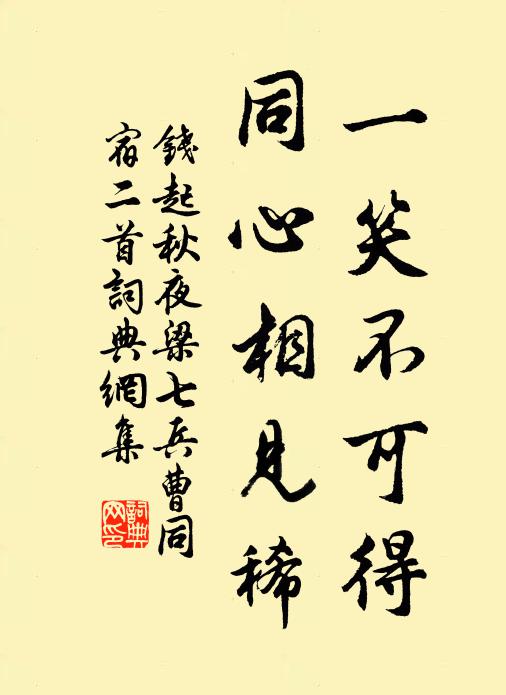 一笑不可得
同心相見稀
錢起秋夜梁七兵曹同
宿二首詞典網集
詞典
网印